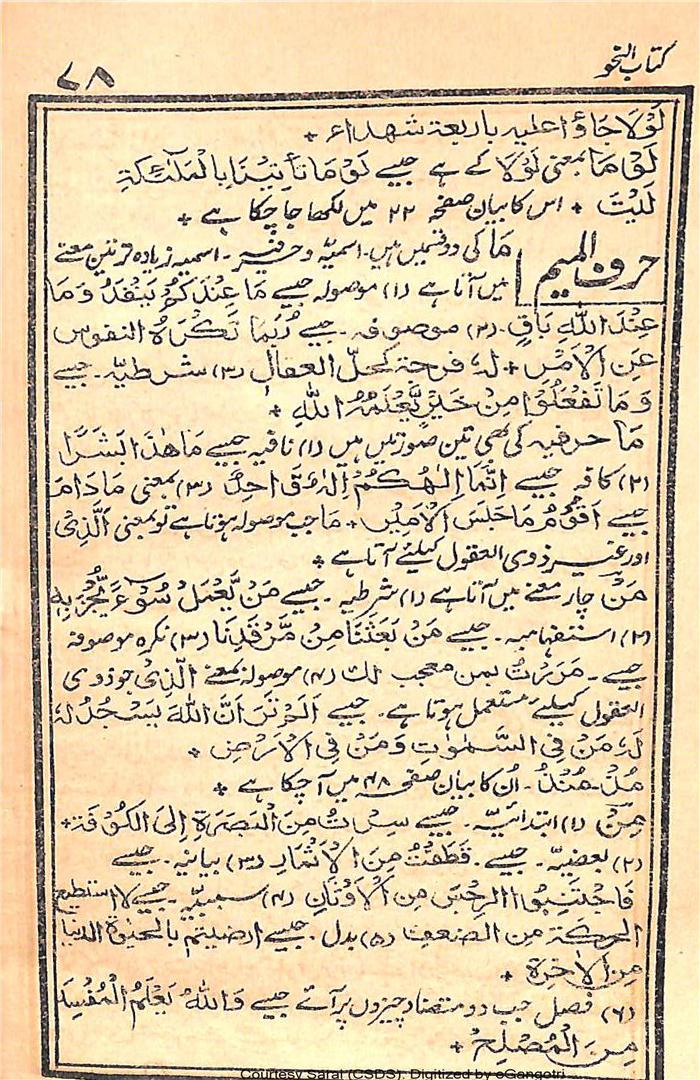 کتاب النحو
۷۸
لَوْلَا جَاؤُا عَلَيهِ بِاَربعة شهداء ٭
لَوْ مَا بمعنی لَوْلَا کے ہے جیسے لَوْ مَا تَأتِيْنَا بِالْمَلٰئِكَةِ
لَيْتَ ٭ اس کا بیان صفحہ ۲۲ میں لکھا جا چکا ہے ٭
حرف المیم
مَا کی دو قسمیں ہیں۔ اسمیّہ و حرفیّہ ۔ اسمیہ زیادہ تر تین معنے
میں آتا ہے (۱) موصولہ جیسے مَا عِنْدَكُمْ يَنْفَدُ وَمَا
عِنْدَ اللهِ بَاقٍ۔ (۲) موصوفہ ۔ جیسے رُبَمَا تَكْرَهُ النفوس
عَنِ الْاَمْرِ ٭ لهٗ فرحة كحلّ العقال (۳) شرطیہ ۔ جیسے
وَمَا تَفْعَلُوْا مِنْ خَيْرٍ يَّعْلَمْهُ اللهِ ٭
مَا حرفیہ کی بھی تین صورتیں ہیں (۱) نافیہ جیسے مَا هٰذَا بَشَرًا
(۲) کافہ جیسے اِنَّمَا اِلٰهُكُمْ اِلٰهٌ وَّاحِدٌ (۳) بمعنی مَادَامَ
جیسے اَقُوْمُ مَا جَلَسَ الْاَمِيْرُ ٭ مَا جب موصولہ ہوتا ہے تو بمعنی اَلَّذِیْ
اور غیر ذوی العقول کیلئے آتا ہے ٭
مَنْ چار معنے میں آتا ہے (۱) شرطیہ ۔ جیسے مَنْ يَّعْمَلْ سُوْءً يُّجْزَ بِهٖ
(۲) استفہامیہ ۔ جیسے مَنْ بَعَثَنَا مِنْ مَّرْقَدِنَا (۳) نکرہ موصوفہ
جیسے ۔ مَرَرْتُ بمن معجب لك (۴) موصولہ بمعنے اَلَّذِیْ جو ذوی
العقول کیلئے مستعمل ہوتا ہے ۔ جیسے اَلَمْ تَرَ اَنَّ اللهَ يَسْجُدُ لَهٗ
لَهٗ مَنْ فِی السَّمٰوٰتِ وَمَنْ فِی الْاَرْضِ ٭
مُذْ۔ مُنْذُ ۔ اُن کا بیان صفحہ ۴۸ میں آ چکا ہے ٭
مِنْ (۱) ابتدائیہ ۔ جیسے سِرْتُ مِنَ الْبَصَرَةِ اِلَى الكُوْفَة ٭
(۲) بعضیہ ۔ جیسے ۔ قَطَفْتُ مِنَ الْاَثْمَارِ (۳) بیانیہ ۔ جیسے
فَاجْتَنِبُوا الرِّجْسَ مِنَ الْاَوْثَانِ (۴) سببیہ ۔ جیسے لا استطیع
الحركة من الضعف (۵) بدل ۔ جیسے ارضيتم بالحيٰوة الدنيا
مِنَ الْاٰخِرَةِ ٭
(۶) فصل جب دو متضاد چیزوں پر آئے جیسے وَاللهُ يَعْلَمُ الْمُفْسِدَ
مِنَ الْمُصْلِحْ ٭
Courtesy Sarai (CSDS). Digitized by eGangotri